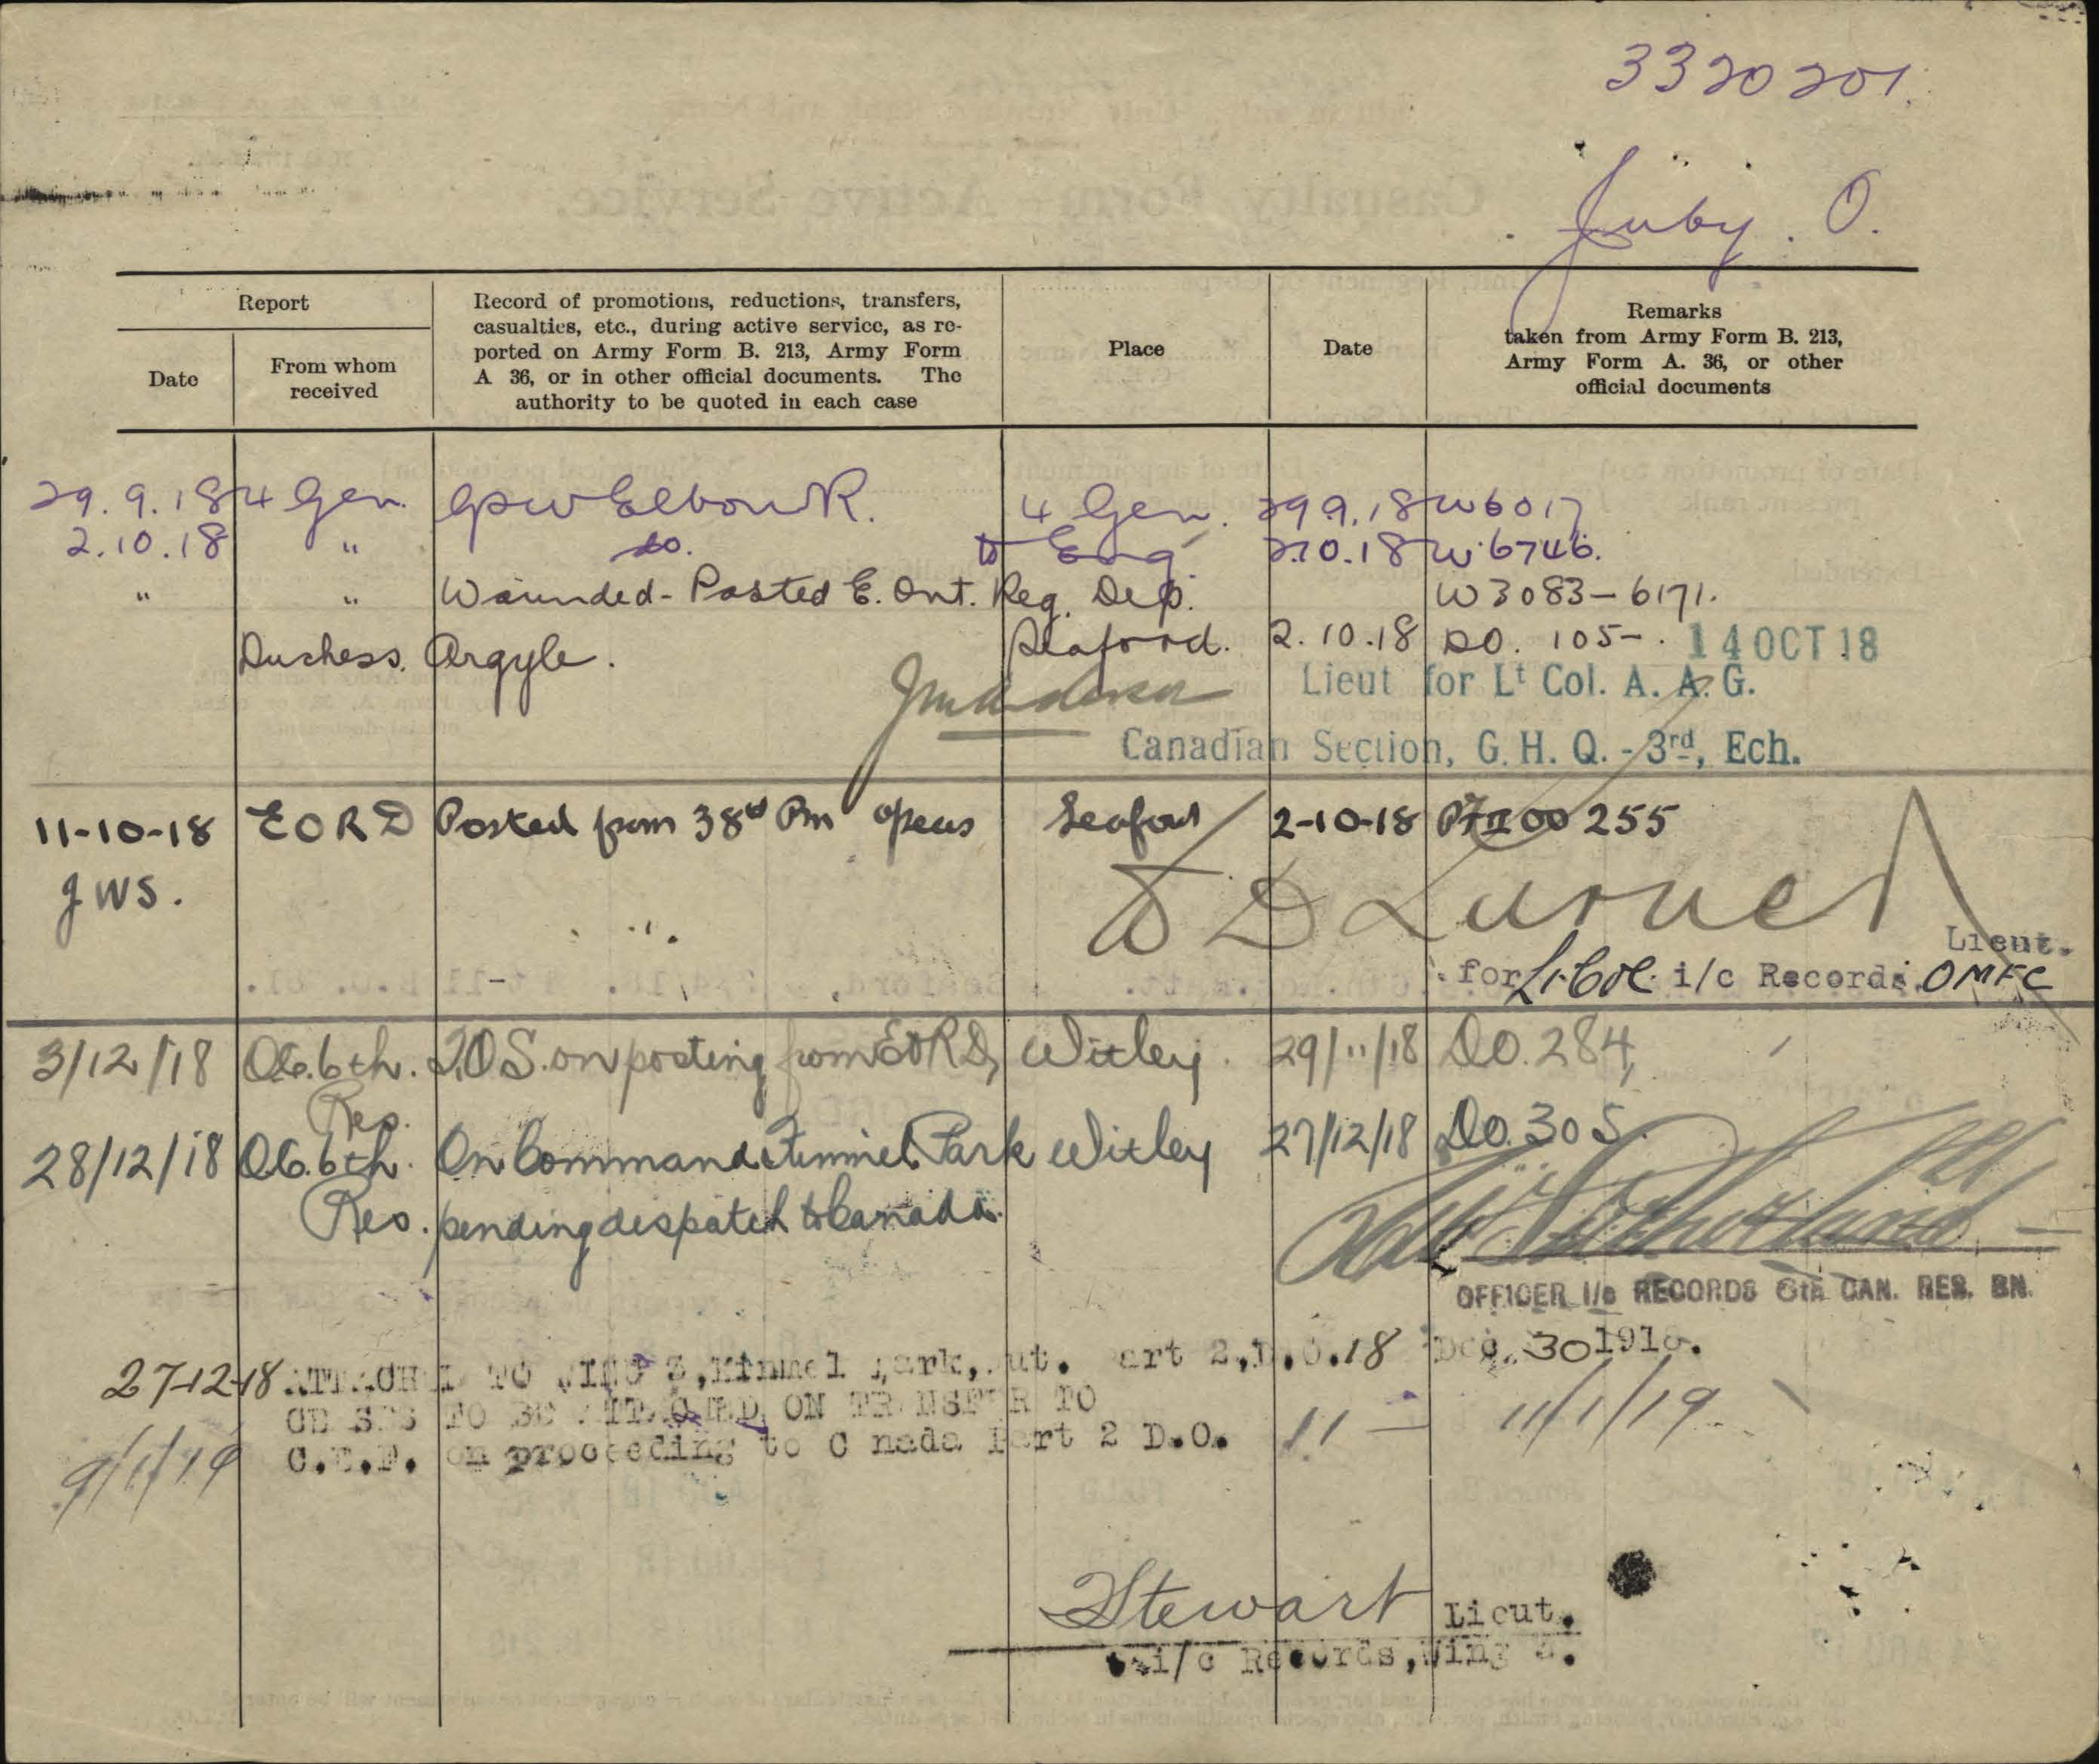 3320201.
Juby. O.
Report
Date
From whom received
Record of promotions, reductions, transfers,
casualties, etc., during active service, as re-
ported on Army Form B. 213, Army Form
A 36, or in other official documents. The
authority to be quoted in each case
Place
Date
Remarks
taken from Army Form B. 213,
Army Form A. 36, or other
official documents
29.9.18 4 Gen. GSW Elbow R. 4 Gen. 29.9.18 W6017
2.10.18 " do. to Eng. 2.10.18 W6746.
" " Wounded - Posted E. Ont. Reg. Dep. W3083-6171.
Duchess. Argyle. Seaford. 2.10.18 DO. 105-. 14 OCT 18
Lieut for Lt Col. A. A. G.
Canadian Section, G. H. Q. - 3rd, Ech.
11-10-18 EORD Posted from 38th Bn Seaford 2-10-18 255
JWS.
D Turner
Lieut.
for Lt. Col. i/c Records OMFC
3/12/18 OC. 6th. Res. T.O.S. on posting from EORD, Witley 29/11/18 DO. 284,
28/12/18 OC. 6th. Res. On Command Kinmel Park Witley 27/12/18 DO. 305.
pending despatch to Canada.
Sutherland
OFFICER I/c RECORDS 6th CAN. RES. BN.
27-12-18 ATTACHED TO WING 3, Kinmel Park, Part 2, D.O. 18 Dec. 30 1918.
CEASES TO BE ATTACHED ON TRANSFER TO
9/1/19 C.E.F. on proceeding to Canada Part 2 D.O. 11 - 11/1/19
Stewart Lieut.
i/c Records, Wing 3.